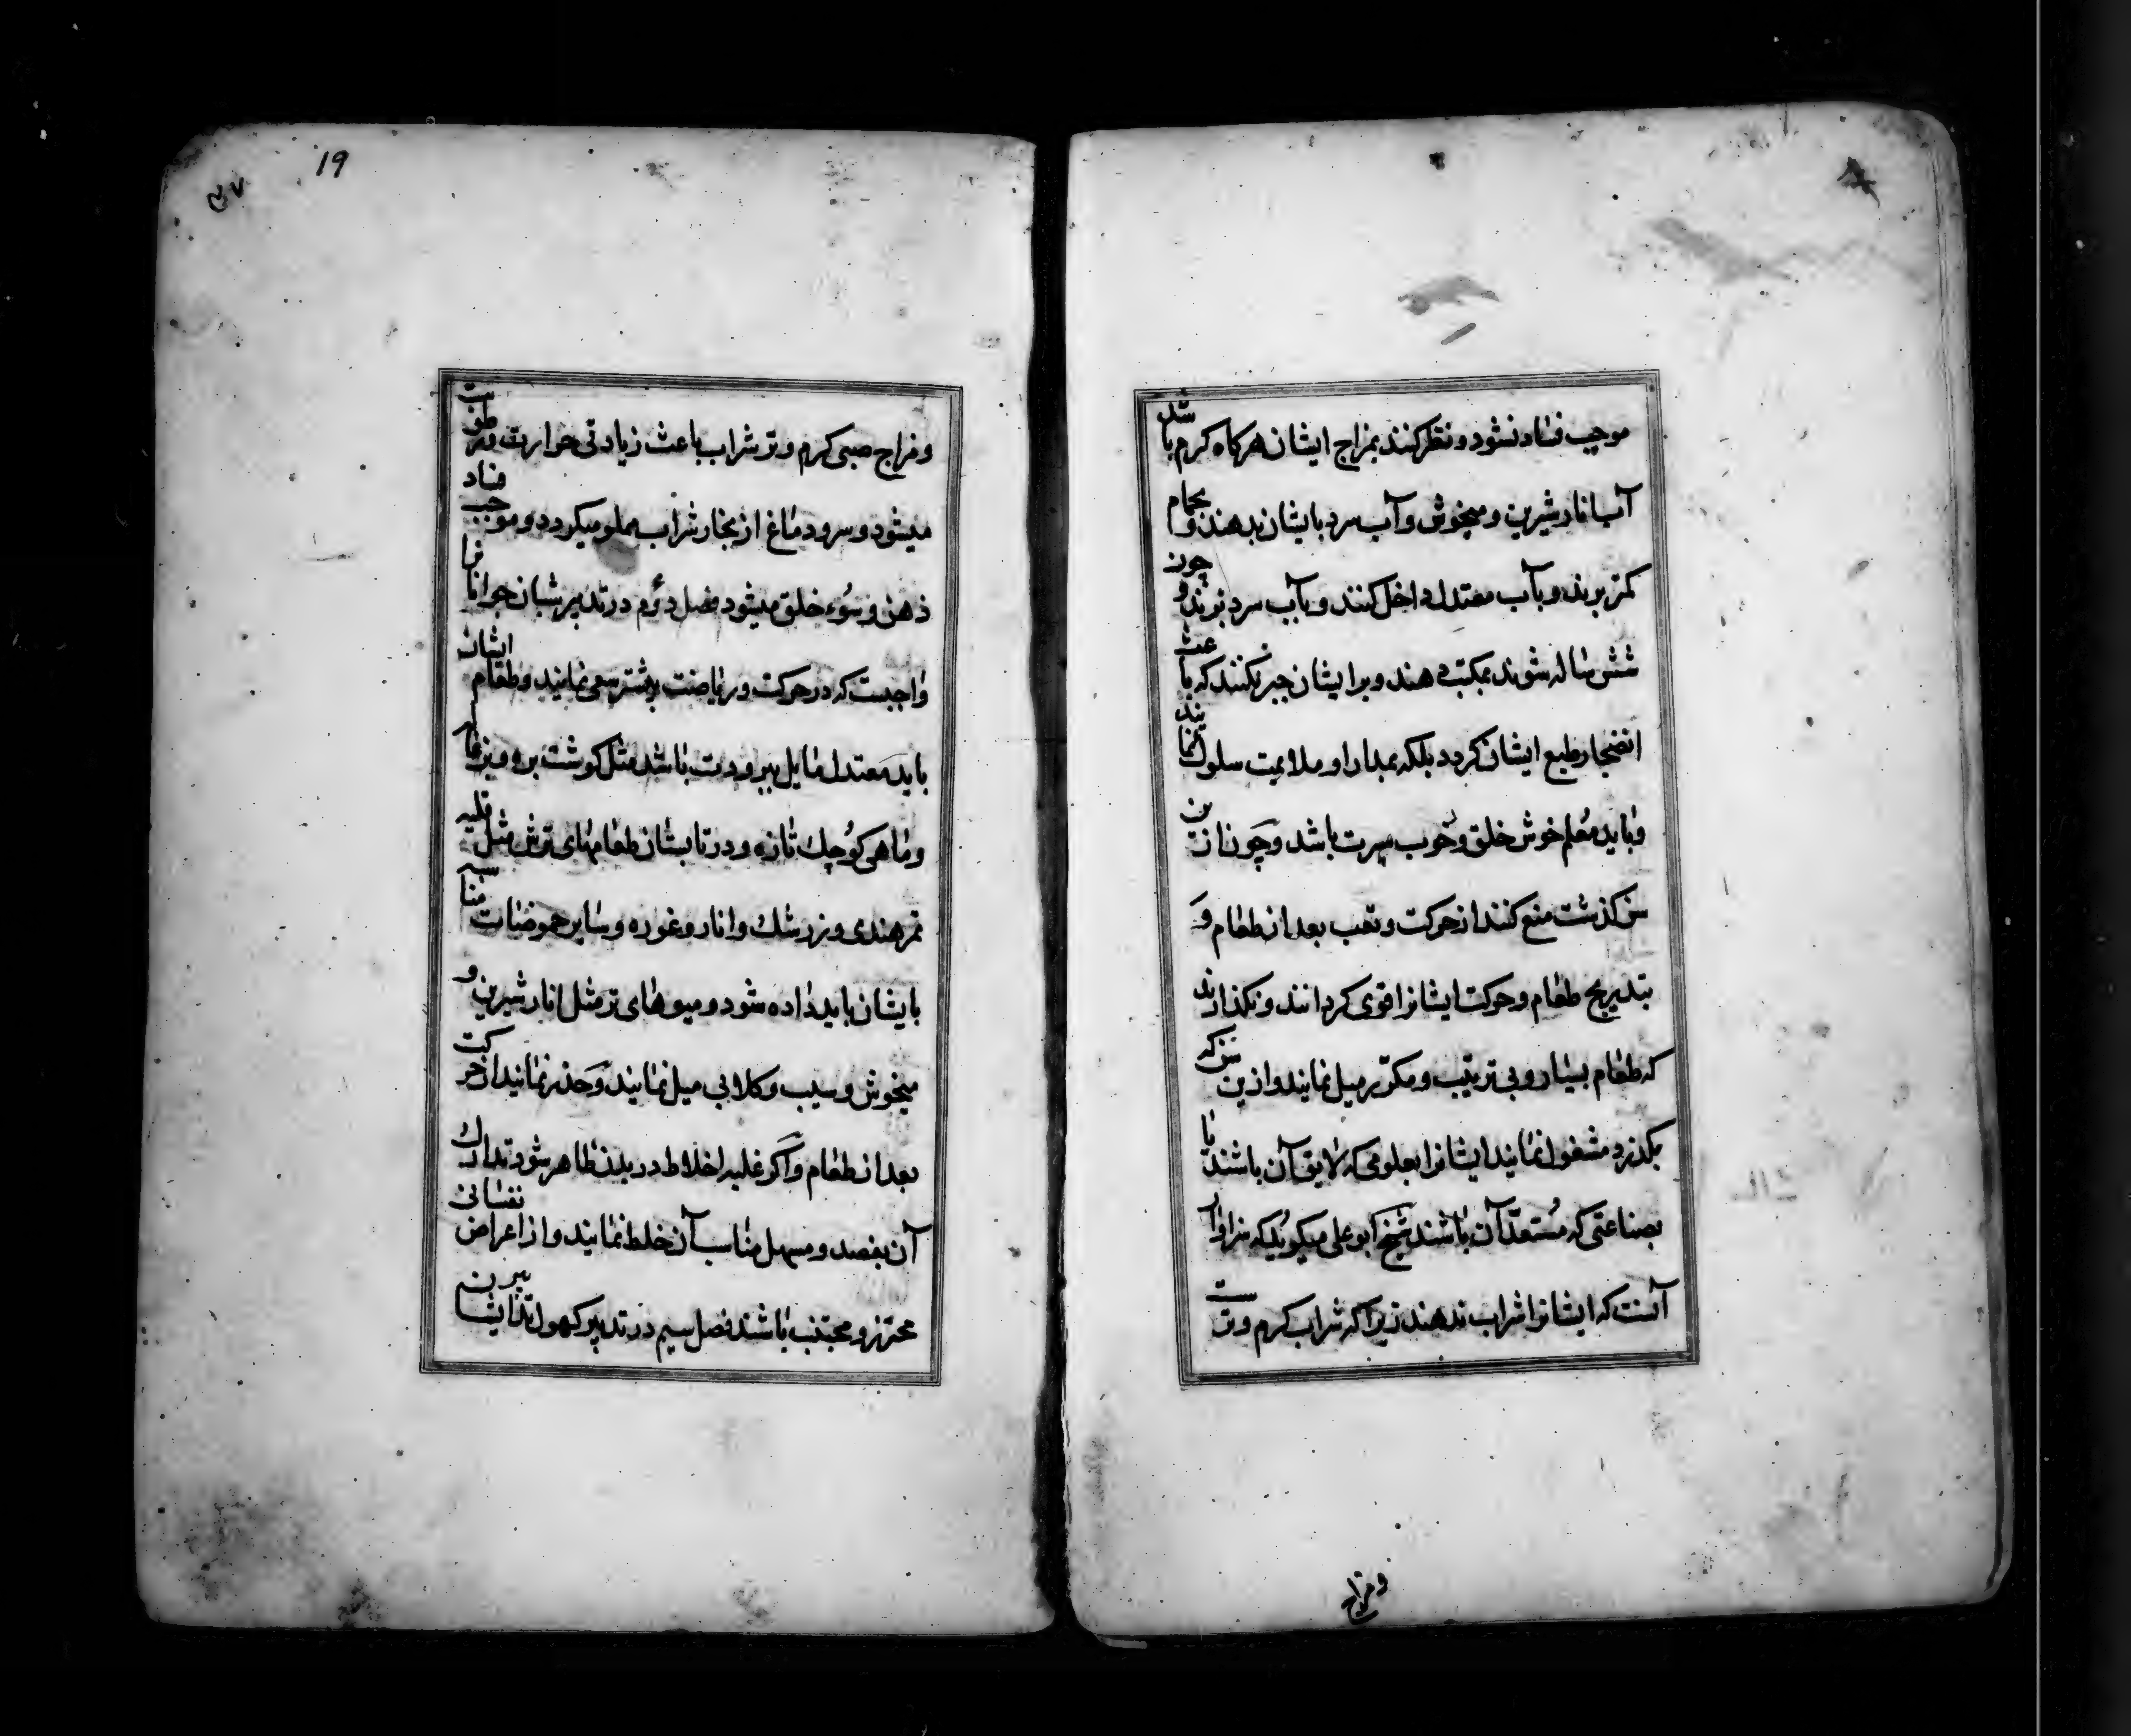 موجب فساد نشود و نظر کنند بمزاج ایشان هرکاه کرم باشد
آب انار شیرین و میخوش و آب سرد بایشان بدهند و بحمام
کمتر برند و بآب معتدل داخل کنند و بآب سرد نبرند و چون
شش ساله شوند بمکتب دهند و بر ایشان جبر نکنند که باعث
انضجار طبع ایشان کردد بلکه بمدارا و ملایمت سلوک نمایند
و باید معلم خوش خلق و خوب سیرت باشد و چون از ین
سن کذشت منع کنند از حرکت و تعب بعد از طعام و
بتدریج طعام و حرکت ایشانرا قوی کردانند و نکذارند
که طعام بسیار و بی ترتیب و مکرر میل نمایند و از ین سن که
بکذرد مشغول نمایند ایشانرا بعلومی که لایق آن باشند یا
بصناعتی که مستعد آن باشند شیخ ابو علی میکوید که سزاوار
آنست که ایشانرا شراب ندهند زیرا که شراب کرم و ترست
و مزاج
19
و مزاج صبی کرم و تر شراب باعث زیادتی حرارت و رطوبت
میشود و سر و دماغ از بخار شراب مملو میکردد و موجب فساد
ذهن و سوء خلق میشود فصل دوم در تدبیر شبان جوانانرا
واجبست که در حرکت و ریاضت بیشتر سعی نمایند و طعام ایشان
باید معتدل مایل ببرودت باشد مثل کوشت بره و بزغاله
و ماهی کوچک تازه و در تابستان طعامهای ترش مثل قلیه
تمرهندی و زرشک و انار و غوره و سایر حموضات مناسبه
بایشان باید داده شود و میوهای تر مثل انار شیرین و
میخوش و سیب و کلابی میل نمایند و حذر نمایند از حرکت
بعد از طعام و اکر غلبه اخلاط در بدن ظاهر شود تدارک
آن بفصد و مسهل مناسب آن خلط نمایند و از اعراض نفسانی
محترز و مجتنب باشند فصل سیم در تدبیر کهول